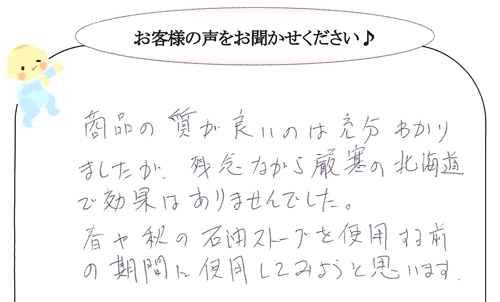 お客様の声をお聞かせください♪
商品の質が良いのは充分わかり
ましたが、残念ながら厳寒の北海道
で効果はありませんでした。
春や秋の石油ストーブを使用する前
の期間に使用してみようと思います.